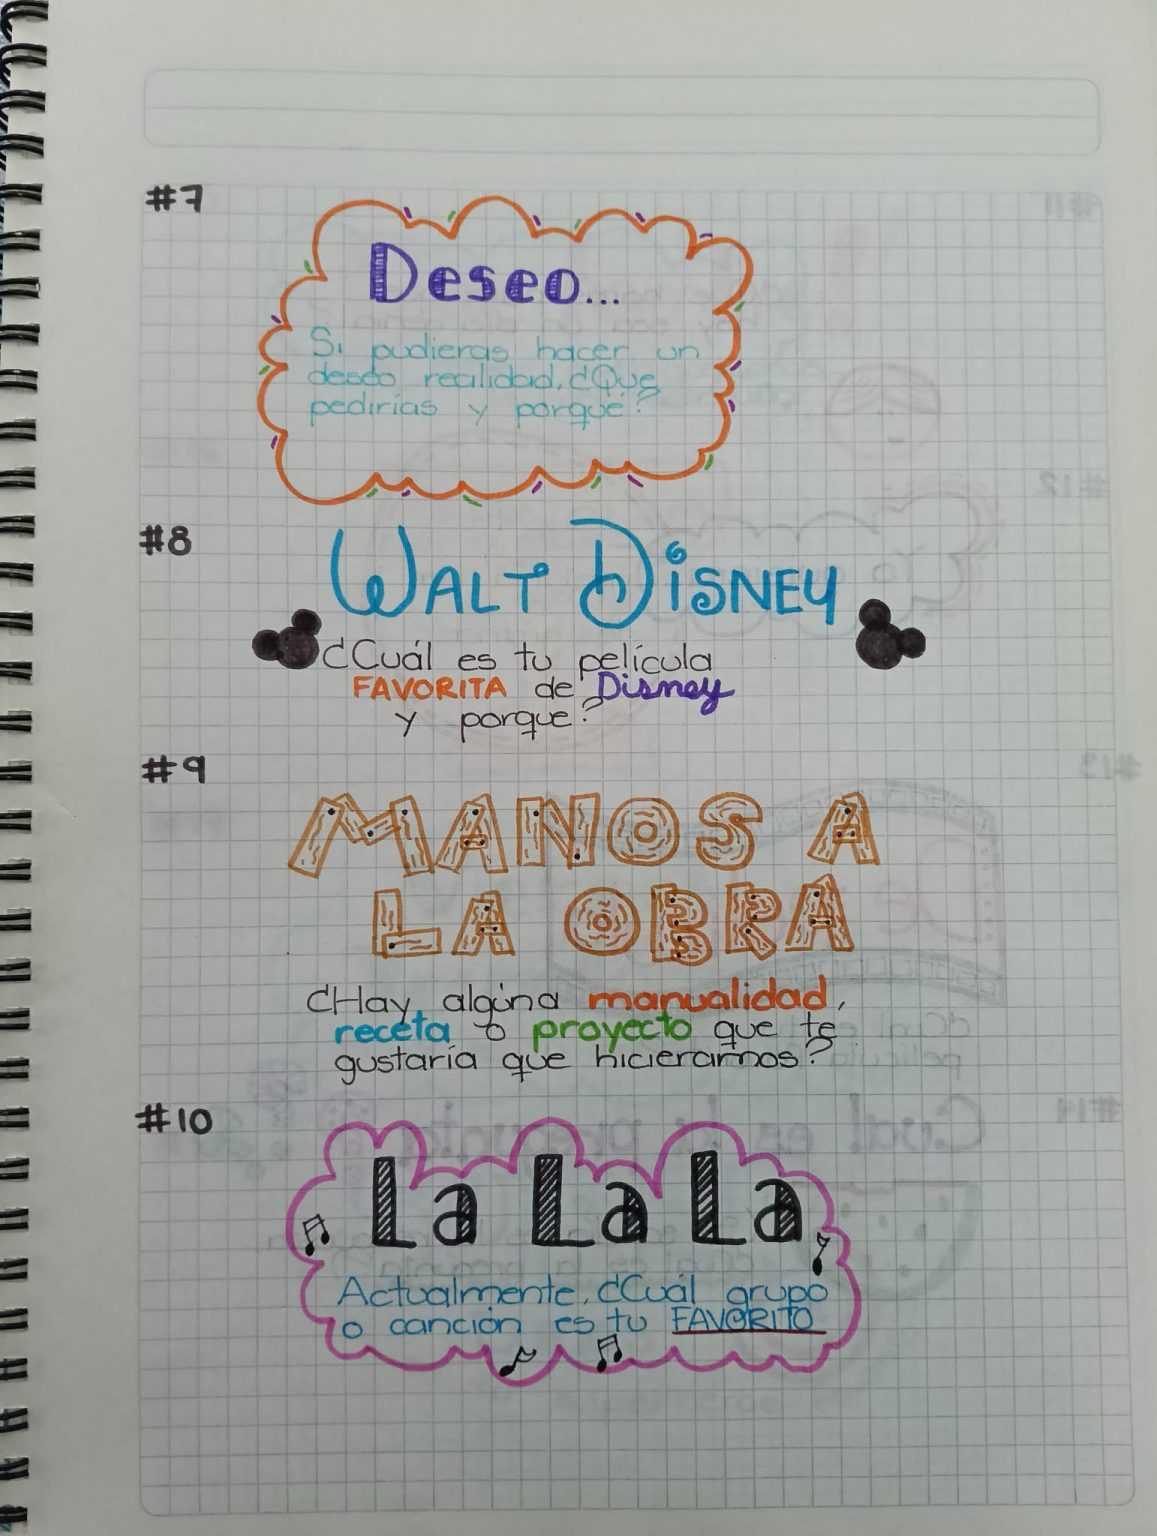 #7
Deseo...
Si pudieras hacer un
deseo realidad, ¿Que
pedirías y porqué?
#8
WALT DISNEY
¿Cuál es tu película
FAVORITA de Disney
y porque?
#9
MANOS A
LA OBRA
¿Hay algúna manualidad,
receta o proyecto que te
gustaría que hicieramos?
#10
La La La
Actualmente, ¿Cuál grupo
o canción es tu FAVORITO